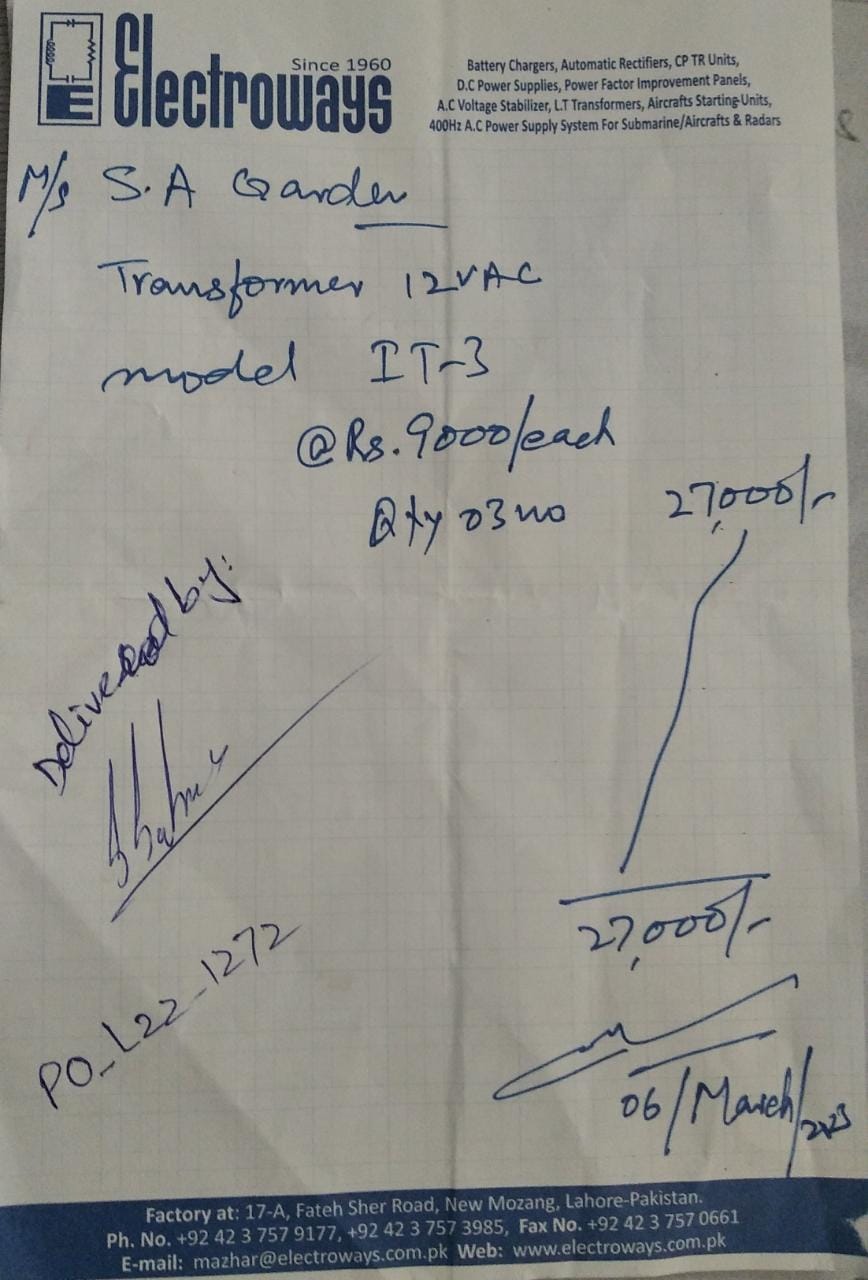 Electroways
Since 1960
Battery Chargers, Automatic Rectifiers, CP TR Units,
D.C Power Supplies, Power Factor Improvement Panels,
A.C Voltage Stabilizer, L.T Transformers, Aircrafts Starting Units,
400Hz A.C Power Supply System For Submarine/Aircrafts & Radars
M/s S.A Garden
Transformer 12VAC
model IT-3
@Rs.9000/each
Qty 03 no 27,000/-
Delivered by:
PO_L22_1272
27,000/-
06/March/2023
Factory at: 17-A, Fateh Sher Road, New Mozang, Lahore-Pakistan.
Ph. No. +92 42 3 757 9177, +92 42 3 757 3985, Fax No. +92 42 3 757 0661
E-mail: mazhar@electroways.com.pk Web: www.electroways.com.pk